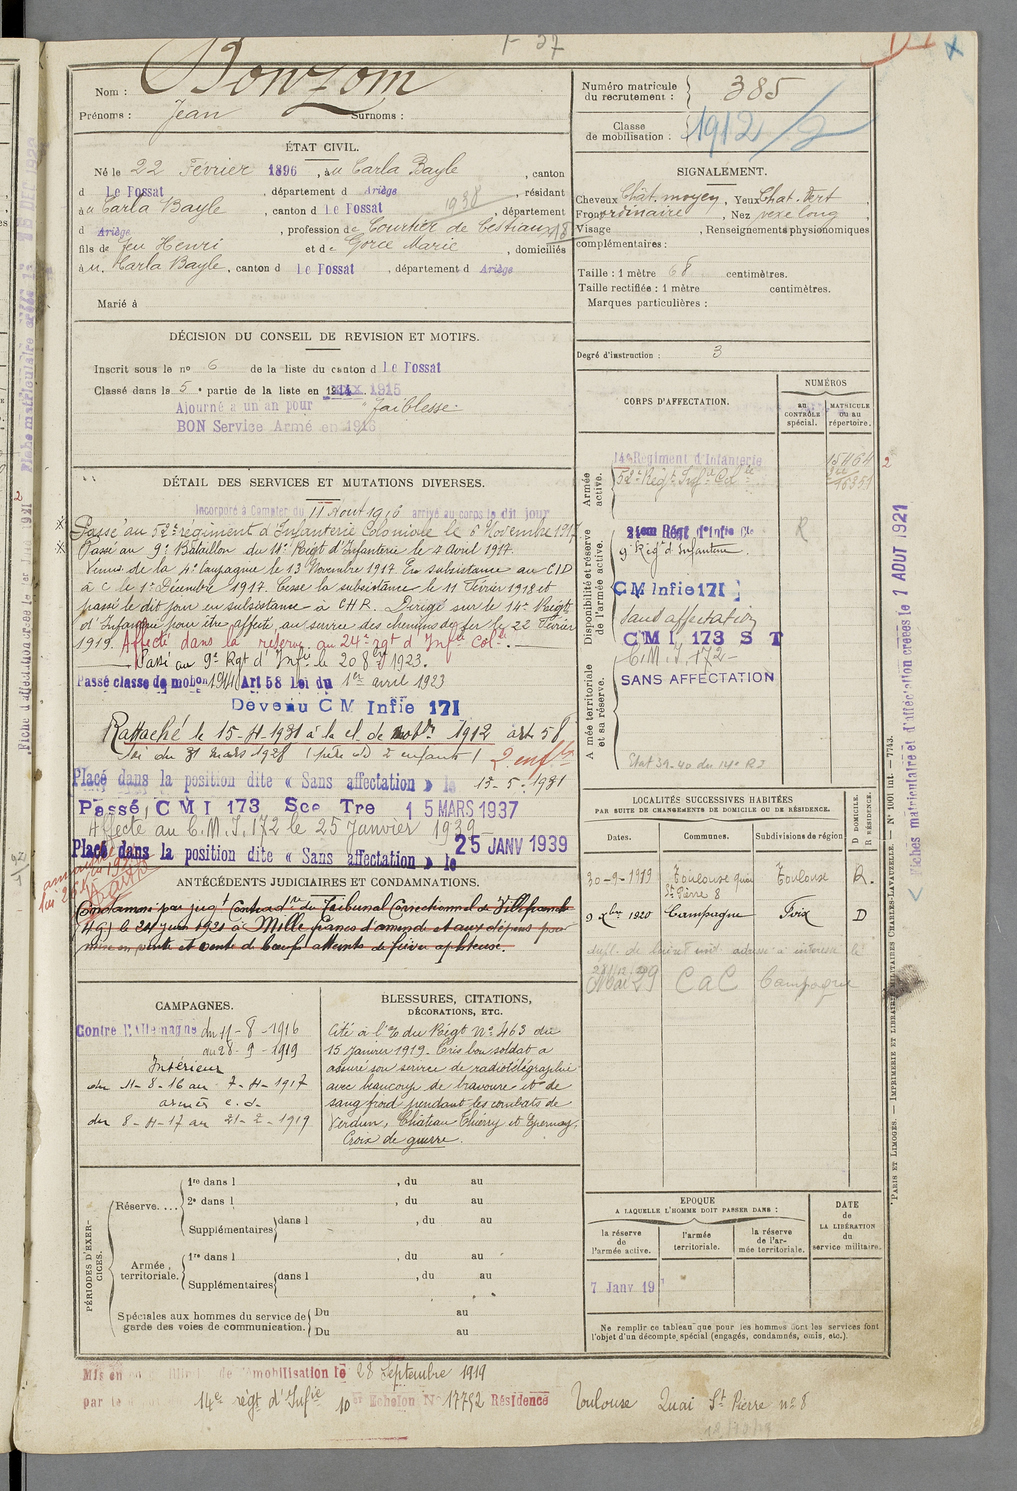 Nom : Bonzom
Prénoms : Jean Surnoms :
Numéro matricule du recrutement : 385
Classe de mobilisation : 1912/2
ÉTAT CIVIL.
Né le 22 Février 1896, à Carla Bayle, canton
d Le Fossat, département d Ariège, résidant
à Carla Bayle, canton d Le Fossat 1938, département
d Ariège, profession de Courtier de bestiaux
fils de feu Henri et de Gorce Marie, domiciliés
à Carla Bayle, canton d Le Fossat, département d Ariège
Marié à
SIGNALEMENT.
Cheveux Chât. moyen, Yeux Chat. Vert,
Front ordinaire, Nez vexe long,
Visage , Renseignements physionomiques
complémentaires :
Taille : 1 mètre 68 centimètres.
Taille rectifiée : 1 mètre centimètres.
Marques particulières :
Degré d'instruction : 3
DÉCISION DU CONSEIL DE REVISION ET MOTIFS.
Inscrit sous le n° 6 de la liste du canton d Le Fossat
Classé dans la 5e partie de la liste en 1915
Ajourné à un an pour faiblesse.
BON Service Armé en 1916
CORPS D'AFFECTATION.
NUMÉROS
au CONTRÔLE spécial.
MATRICULE ou au répertoire.
Armée active.
14e Régiment d'Infanterie 15464
52e Régt Infie Cole 16351
Disponibilité et réserve de l'armée active.
24eme Régt d'Infie Cle R
9e Régt d'Infanterie.
CM Infie 171
Sans affectation
CMI 173 S T
Armée territoriale et sa réserve.
C.M.I. 172
SANS AFFECTATION
Etat 39-40 du 14e RI
DÉTAIL DES SERVICES ET MUTATIONS DIVERSES.
Incorporé à compter du 11 Août 1916 arrivé au corps le dit jour
Passé au 52e régiment d'Infanterie Coloniale le 6 Novembre 1917
Passé au 9e Bataillon du 14e Régt d'Infanterie le 7 avril 1917.
Venu de la 4e Compagnie le 13 Novembre 1917 En subsistance au CID
à c. le 1er Décembre 1917. Cesse la subsistance le 11 Février 1918 et
passé le dit jour en subsistance à CHR. Dirigé sur le 14e Régt
d'Infanterie pour être affecté au service des chemins de fer le 22 Février
1919. Affecté dans la réserve au 24e rgt d'Infie Colle.
Passé au 9e Rgt d'Infie le 20 8bre 1923.
Passé classe de mobon 1914 Art 58 Loi du 1er avril 1923
Devenu CM Infie 171
Rattaché le 15-4-1931 à la cl. de mobon 1912 art 58
loi du 31 mars 1928 (père de 2 enfants) 2 enfts
Placé dans la position dite « Sans affectation » le 15-5-1931
Passé CMI 173 Sce Tre 15 MARS 1937
Affecté au C.M.I. 172 le 25 Janvier 1939
Placé dans la position dite « Sans affectation » le 25 JANV 1939
ANTÉCÉDENTS JUDICIAIRES ET CONDAMNATIONS.
Condamné par jugt Contradre du Tribunal Correctionnel de Villefranche
(HG) le 24 juin 1921 à Mille francs d'amende et aux dépens pour
mise en vente et vente de bœufs atteints de fièvre aphteuse.
LOCALITÉS SUCCESSIVES HABITÉES
PAR SUITE DE CHANGEMENTS DE DOMICILE OU DE RÉSIDENCE.
Dates. Communes. Subdivisions de région. D DOMICILE. R RÉSIDENCE.
30-9-1919 Toulouse quai St Pierre 8 Toulouse R.
9 Xbre 1920 Campagne Foix D
CAMPAGNES.
Contre l'Allemagne du 11-8-1916
au 28-9-1919
Intérieur
du 11-8-16 au 7-4-1917
armées c.d.
du 8-4-17 au 21-2-1919
BLESSURES, CITATIONS, DÉCORATIONS, ETC.
Cité à l'O du Régt N° 463 du
15 janvier 1919. Très bon soldat a
assuré son service de radiotélégraphie
avec beaucoup de bravoure et de
sang froid pendant les combats de
Verdun, Château Thierry et Epernay.
Croix de guerre.
PÉRIODES D'EXERCICES.
Réserve....
1re dans l , du au
2e dans l , du au
Supplémentaires dans l , du au
Armée territoriale.
1re dans l , du au
Supplémentaires dans l , du au
Spéciales aux hommes du service de garde des voies de communication.
Du au
Du au
EPOQUE
A LAQUELLE L'HOMME DOIT PASSER DANS :
la réserve de l'armée active.
l'armée territoriale.
la réserve de l'armée territoriale.
DATE de LA LIBÉRATION du service militaire.
7 Janv 19
Ne remplir ce tableau que pour les hommes dont les services font
l'objet d'un décompte spécial (engagés, condamnés, omis, etc.).
Mis en de démobilisation le 28 Septembre 1919
par le 14e régt d'Infie 10e Echelon N° 17792 Résidence Toulouse Quai St Pierre n° 8
Fiches matriculaire et d'affectation créées le 1 AOUT 1921
PARIS ET LIMOGES. — IMPRIMERIE ET LIBRAIRIE MILITAIRES CHARLES-LAVAUZELLE. — N° 1001 int. — 7743.